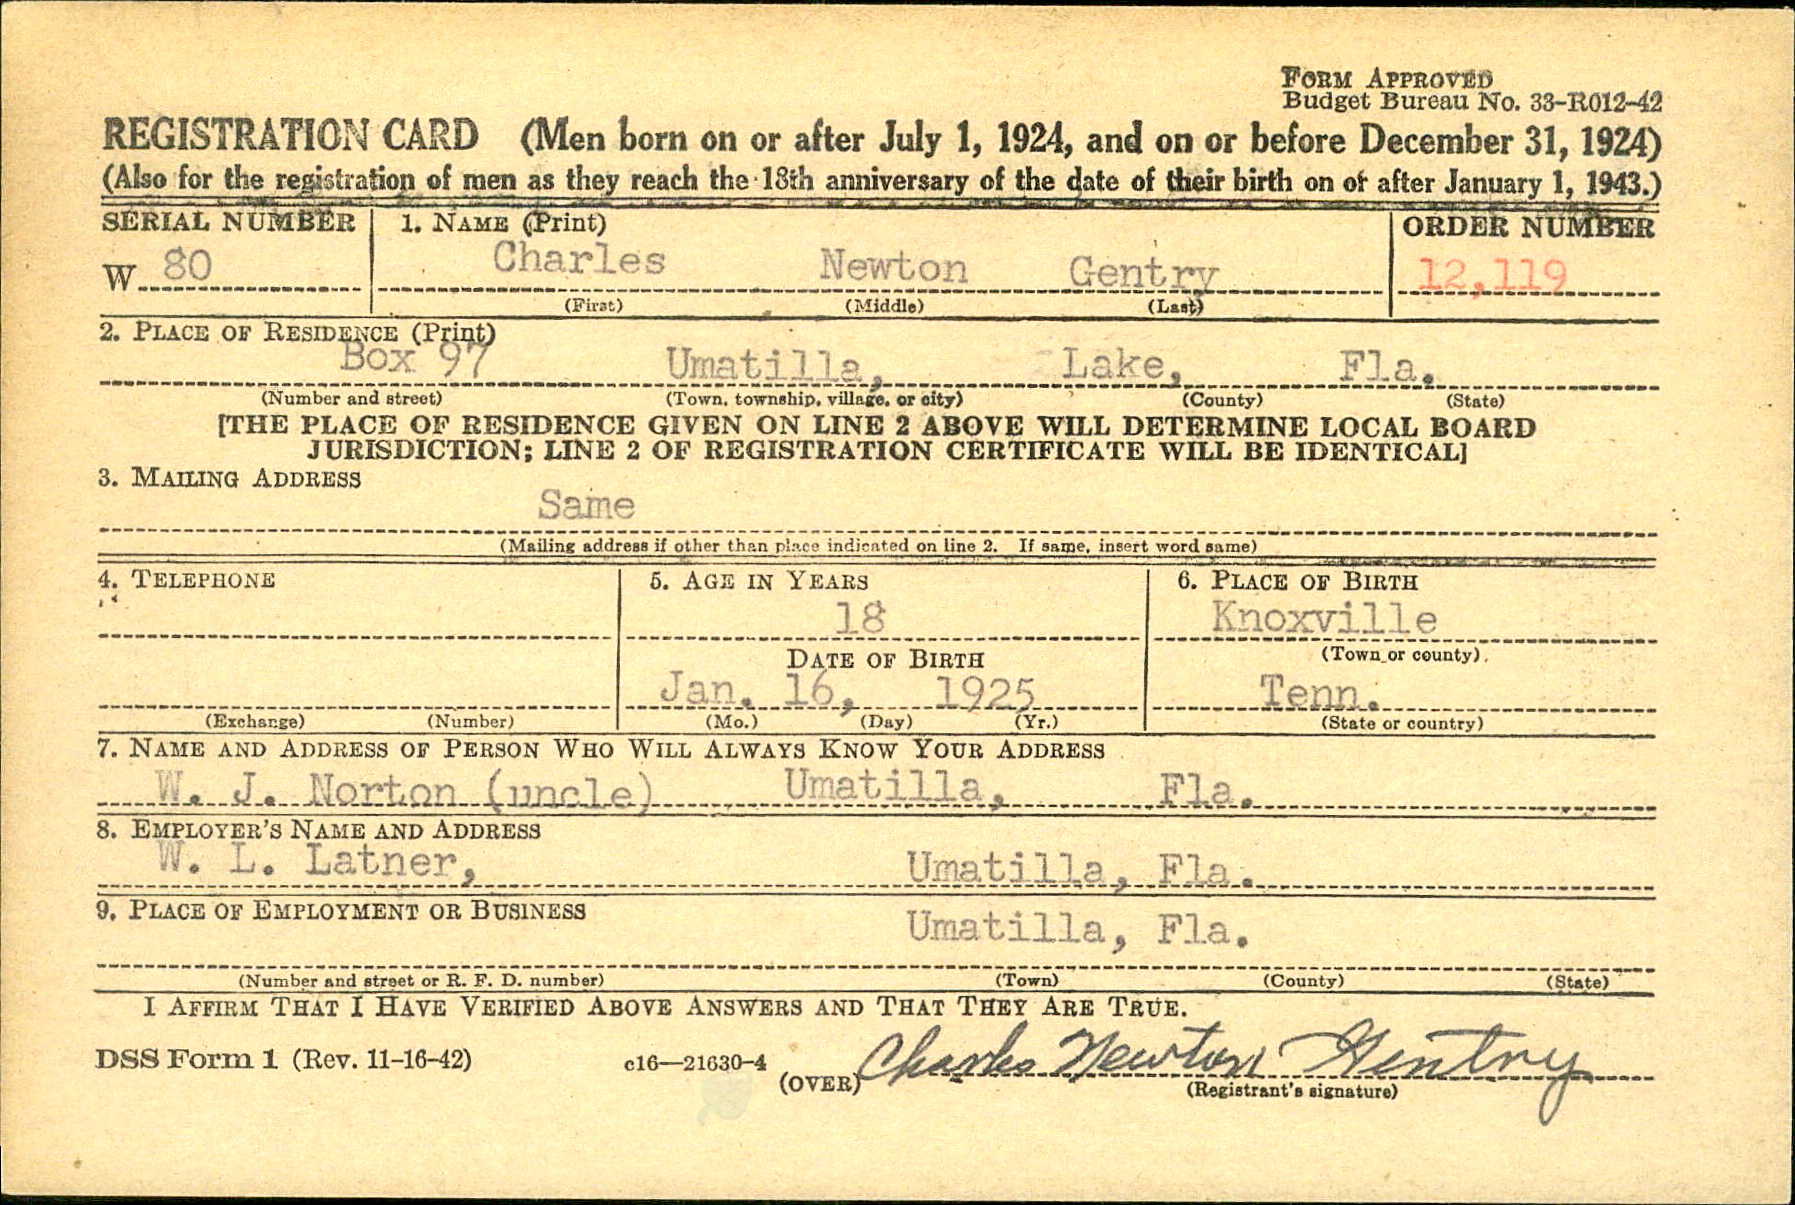 FORM APPROVED
Budget Bureau No. 33-R012-42
REGISTRATION CARD (Men born on or after July 1, 1924, and on or before December 31, 1924)
(Also for the registration of men as they reach the 18th anniversary of the date of their birth on or after January 1, 1943.)
SERIAL NUMBER 1. NAME (Print) ORDER NUMBER
W 80 Charles Newton Gentry 12,119
(First) (Middle) (Last)
2. PLACE OF RESIDENCE (Print)
Box 97 Umatilla, Lake, Fla.
(Number and street) (Town, township, village, or city) (County) (State)
[THE PLACE OF RESIDENCE GIVEN ON LINE 2 ABOVE WILL DETERMINE LOCAL BOARD
JURISDICTION; LINE 2 OF REGISTRATION CERTIFICATE WILL BE IDENTICAL]
3. MAILING ADDRESS
Same
(Mailing address if other than place indicated on line 2. If same, insert word same)
4. TELEPHONE 5. AGE IN YEARS 6. PLACE OF BIRTH
18 Knoxville
DATE OF BIRTH (Town or county)
Jan. 16, 1925 Tenn.
(Exchange) (Number) (Mo.) (Day) (Yr.) (State or country)
7. NAME AND ADDRESS OF PERSON WHO WILL ALWAYS KNOW YOUR ADDRESS
W. J. Norton (uncle) Umatilla, Fla.
8. EMPLOYER'S NAME AND ADDRESS
W. L. Latner, Umatilla, Fla.
9. PLACE OF EMPLOYMENT OR BUSINESS
Umatilla, Fla.
(Number and street or R. F. D. number) (Town) (County) (State)
I AFFIRM THAT I HAVE VERIFIED ABOVE ANSWERS AND THAT THEY ARE TRUE.
DSS Form 1 (Rev. 11-16-42) c16—21630-4 (OVER) Charles Newton Gentry
(Registrant's signature)